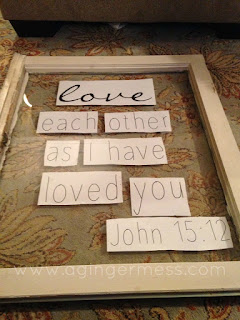 love
each other
as I have
loved you
John 15:12
www.agingermess.com